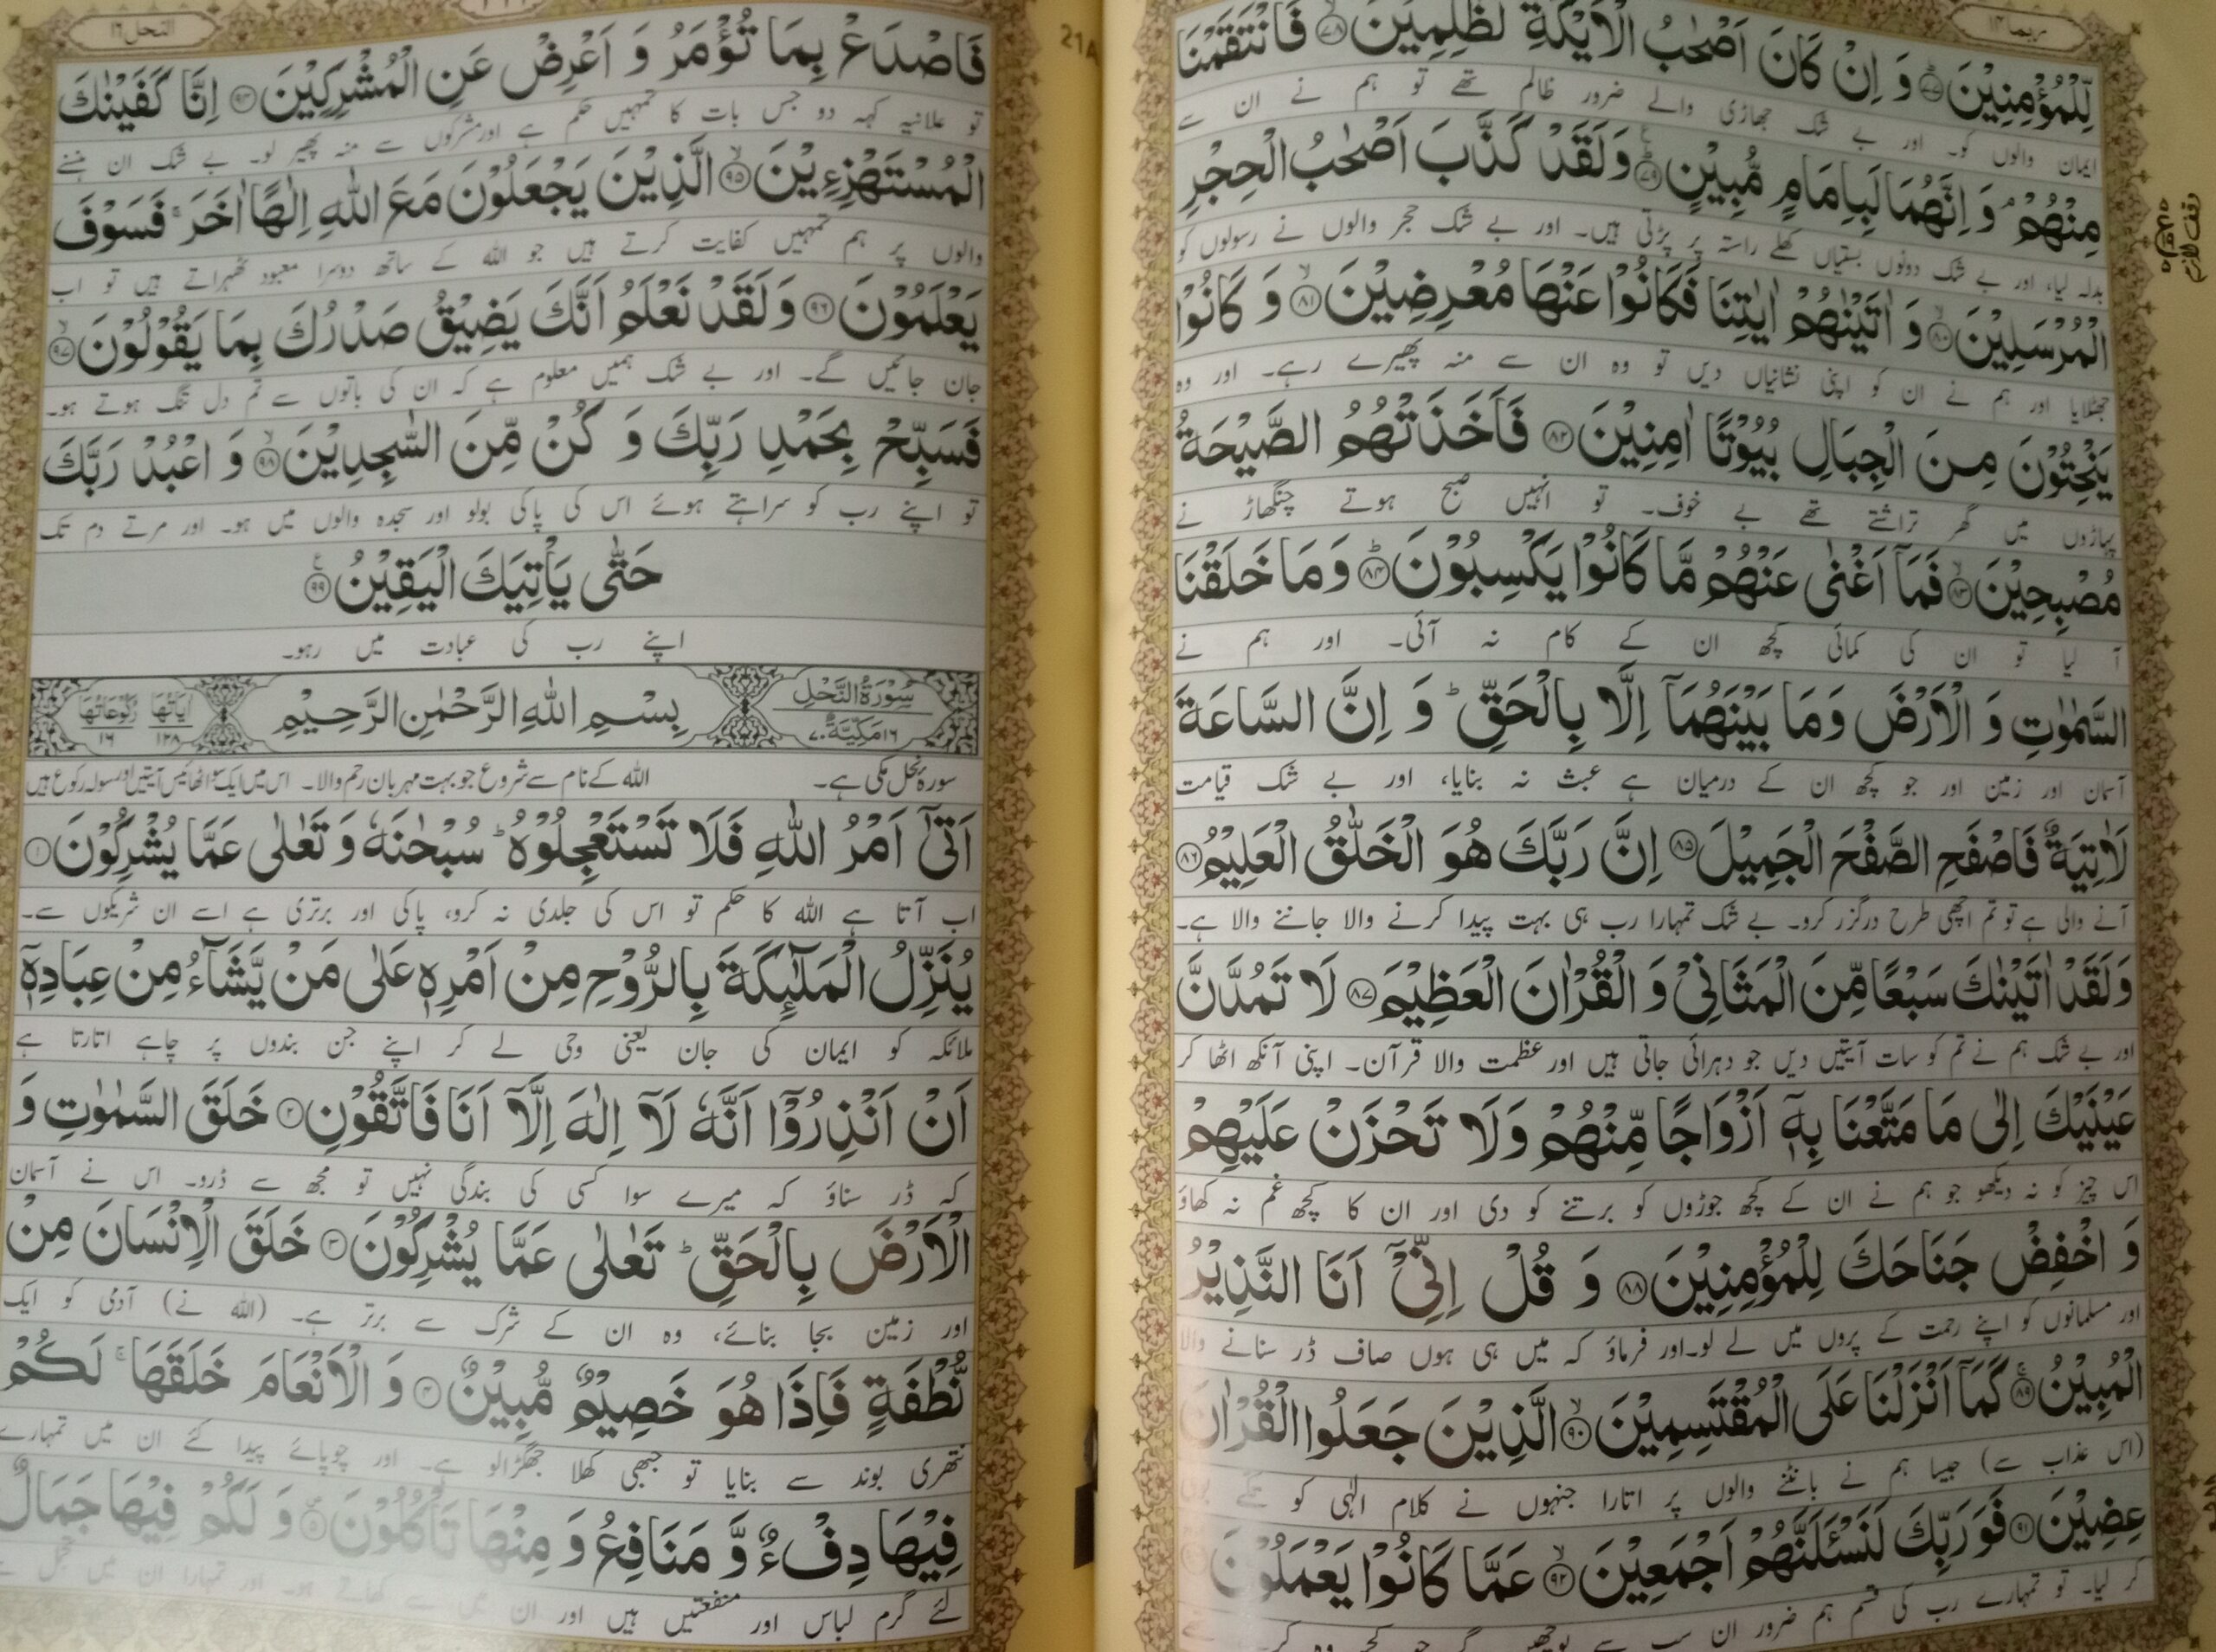 ربما ۱۴
لِّلْمُؤْمِنِيْنَ ﴿۷۷﴾ وَ اِنْ كَانَ اَصْحٰبُ الْاَيْكَةِ لَظٰلِمِيْنَ ﴿۷۸﴾ فَانْتَقَمْنَا
ایمان والوں کو۔ اور بے شک جھاڑی والے ضرور ظالم تھے تو ہم نے ان سے
مِنْهُمْ ۘ وَ اِنَّهُمَا لَبِاِمَامٍ مُّبِيْنٍ ﴿۷۹﴾ وَلَقَدْ كَذَّبَ اَصْحٰبُ الْحِجْرِ
بدلہ لیا، اور بے شک دونوں بستیاں کھلے راستہ پر پڑتی ہیں۔ اور بے شک حجر والوں نے رسولوں کو
الْمُرْسَلِيْنَ ﴿۸۰﴾ وَ اٰتَيْنٰهُمْ اٰيٰتِنَا فَكَانُوْا عَنْهَا مُعْرِضِيْنَ ﴿۸۱﴾ وَ كَانُوْا
جھٹلایا اور ہم نے ان کو اپنی نشانیاں دیں تو وہ ان سے منہ پھیرے رہے۔ اور وہ
يَنْحِتُوْنَ مِنَ الْجِبَالِ بُيُوْتًا اٰمِنِيْنَ ﴿۸۲﴾ فَاَخَذَتْهُمُ الصَّيْحَةُ
پہاڑوں میں گھر تراشتے تھے بے خوف۔ تو انہیں صبح ہوتے چنگھاڑ نے
مُصْبِحِيْنَ ﴿۸۳﴾ فَمَاۤ اَغْنٰى عَنْهُمْ مَّا كَانُوْا يَكْسِبُوْنَ ﴿۸۴﴾ وَمَا خَلَقْنَا
آ لیا تو ان کی کمائی کچھ ان کے کام نہ آئی۔ اور ہم نے
السَّمٰوٰتِ وَ الْاَرْضَ وَمَا بَيْنَهُمَاۤ اِلَّا بِالْحَقِّ ؕ وَ اِنَّ السَّاعَةَ
آسمان اور زمین اور جو کچھ ان کے درمیان ہے عبث نہ بنایا، اور بے شک قیامت
لَاٰتِيَةٌ فَاصْفَحِ الصَّفْحَ الْجَمِيْلَ ﴿۸۵﴾ اِنَّ رَبَّكَ هُوَ الْخَلّٰقُ الْعَلِيْمُ ﴿۸۶﴾
آنے والی ہے تو تم اچھی طرح درگزر کرو۔ بے شک تمہارا رب ہی بہت پیدا کرنے والا جاننے والا ہے۔
وَلَقَدْ اٰتَيْنٰكَ سَبْعًا مِّنَ الْمَثَانِيْ وَ الْقُرْاٰنَ الْعَظِيْمَ ﴿۸۷﴾ لَا تَمُدَّنَّ
اور بے شک ہم نے تم کو سات آیتیں دیں جو دہرائی جاتی ہیں اور عظمت والا قرآن۔ اپنی آنکھ اٹھا کر
عَيْنَيْكَ اِلٰى مَا مَتَّعْنَا بِهٖۤ اَزْوَاجًا مِّنْهُمْ وَلَا تَحْزَنْ عَلَيْهِمْ
اس چیز کو نہ دیکھو جو ہم نے ان کے کچھ جوڑوں کو برتنے کو دی اور ان کا کچھ غم نہ کھاؤ
وَ اخْفِضْ جَنَاحَكَ لِلْمُؤْمِنِيْنَ ﴿۸۸﴾ وَ قُلْ اِنِّيْۤ اَنَا النَّذِيْرُ
اور مسلمانوں کو اپنے رحمت کے پروں میں لے لو۔ اور فرماؤ کہ میں ہی ہوں صاف ڈر سنانے والا
الْمُبِيْنُ ﴿۸۹﴾ كَمَاۤ اَنْزَلْنَا عَلَى الْمُقْتَسِمِيْنَ ﴿۹۰﴾ الَّذِيْنَ جَعَلُوا الْقُرْاٰنَ
(اس عذاب سے) جیسا ہم نے بانٹنے والوں پر اتارا جنہوں نے کلام الٰہی کو تکے بوٹی
عِضِيْنَ ﴿۹۱﴾ فَوَرَبِّكَ لَنَسْـَٔلَنَّهُمْ اَجْمَعِيْنَ ﴿۹۲﴾ عَمَّا كَانُوْا يَعْمَلُوْنَ
کر لیا۔ تو تمہارے رب کی قسم ہم ضرور ان سب سے پوچھیں گے جو کچھ وہ کرتے
النحل ۱۶
فَاصْدَعْ بِمَا تُؤْمَرُ وَ اَعْرِضْ عَنِ الْمُشْرِكِيْنَ ﴿۹۴﴾ اِنَّا كَفَيْنٰكَ
تو علانیہ کہہ دو جس بات کا تمہیں حکم ہے اور مشرکوں سے منہ پھیر لو۔ بے شک ان ہنسنے
الْمُسْتَهْزِءِيْنَ ﴿۹۵﴾ الَّذِيْنَ يَجْعَلُوْنَ مَعَ اللّٰهِ اِلٰهًا اٰخَرَ ۚ فَسَوْفَ
والوں پر ہم تمہیں کفایت کرتے ہیں جو اللہ کے ساتھ دوسرا معبود ٹھہراتے ہیں تو اب
يَعْلَمُوْنَ ﴿۹۶﴾ وَلَقَدْ نَعْلَمُ اَنَّكَ يَضِيْقُ صَدْرُكَ بِمَا يَقُوْلُوْنَ ﴿۹۷﴾
جان جائیں گے۔ اور بے شک ہمیں معلوم ہے کہ ان کی باتوں سے تم دل تنگ ہوتے ہو۔
فَسَبِّحْ بِحَمْدِ رَبِّكَ وَ كُنْ مِّنَ السّٰجِدِيْنَ ﴿۹۸﴾ وَ اعْبُدْ رَبَّكَ
تو اپنے رب کو سراہتے ہوئے اس کی پاکی بولو اور سجدہ والوں میں ہو۔ اور مرتے دم تک
حَتّٰى يَاْتِيَكَ الْيَقِيْنُ ﴿۹۹﴾
اپنے رب کی عبادت میں رہو۔
سُوْرَةُ النَّحْلِ ۱۶ مَكِّيَّةٌ ۷۰ بِسْمِ اللّٰهِ الرَّحْمٰنِ الرَّحِيْمِ اٰيَاتُهَا ۱۲۸ رُكُوْعَاتُهَا ۱۶
سورۂ نحل مکی ہے۔ اللہ کے نام سے شروع جو بہت مہربان رحم والا۔ اس میں ایک سو اٹھائیس آیتیں اور سولہ رکوع ہیں
اَتٰۤى اَمْرُ اللّٰهِ فَلَا تَسْتَعْجِلُوْهُ ؕ سُبْحٰنَهٗ وَ تَعٰلٰى عَمَّا يُشْرِكُوْنَ ﴿۱﴾
اب آتا ہے اللہ کا حکم تو اس کی جلدی نہ کرو، پاکی اور برتری ہے اسے ان شریکوں سے۔
يُنَزِّلُ الْمَلٰٓئِكَةَ بِالرُّوْحِ مِنْ اَمْرِهٖ عَلٰى مَنْ يَّشَآءُ مِنْ عِبَادِهٖۤ
ملائکہ کو ایمان کی جان یعنی وحی لے کر اپنے جن بندوں پر چاہے اتارتا ہے
اَنْ اَنْذِرُوْۤا اَنَّهٗ لَاۤ اِلٰهَ اِلَّاۤ اَنَا فَاتَّقُوْنِ ﴿۲﴾ خَلَقَ السَّمٰوٰتِ وَ
کہ ڈر سناؤ کہ میرے سوا کسی کی بندگی نہیں تو مجھ سے ڈرو۔ اس نے آسمان
الْاَرْضَ بِالْحَقِّ ؕ تَعٰلٰى عَمَّا يُشْرِكُوْنَ ﴿۳﴾ خَلَقَ الْاِنْسَانَ مِنْ
اور زمین بجا بنائے، وہ ان کے شرک سے برتر ہے۔ (اللہ نے) آدمی کو ایک
نُّطْفَةٍ فَاِذَا هُوَ خَصِيْمٌ مُّبِيْنٌ ﴿۴﴾ وَ الْاَنْعَامَ خَلَقَهَا ۚ لَكُمْ
نتھری بوند سے بنایا تو جبھی کھلا جھگڑالو ہے۔ اور چوپائے پیدا کئے ان میں تمہارے
فِيْهَا دِفْءٌ وَّ مَنَافِعُ وَ مِنْهَا تَاْكُلُوْنَ ﴿۵﴾ وَ لَكُمْ فِيْهَا جَمَالٌ
لئے گرم لباس اور منفعتیں ہیں اور ان میں سے کھاتے ہو۔ اور تمہارا ان میں تجمل ہے